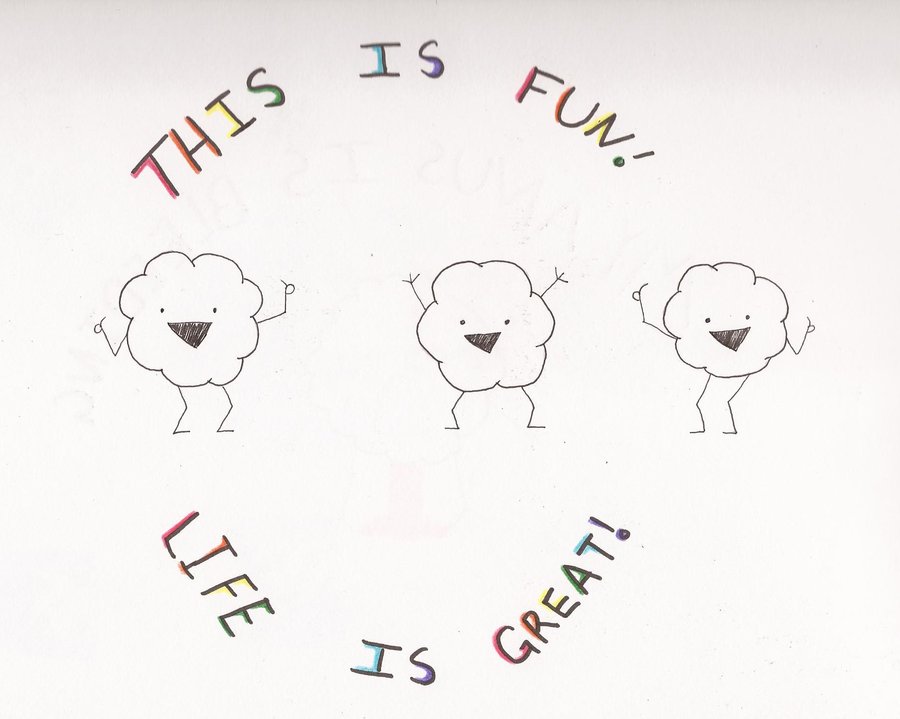 THIS IS FUN!
LIFE IS GREAT!